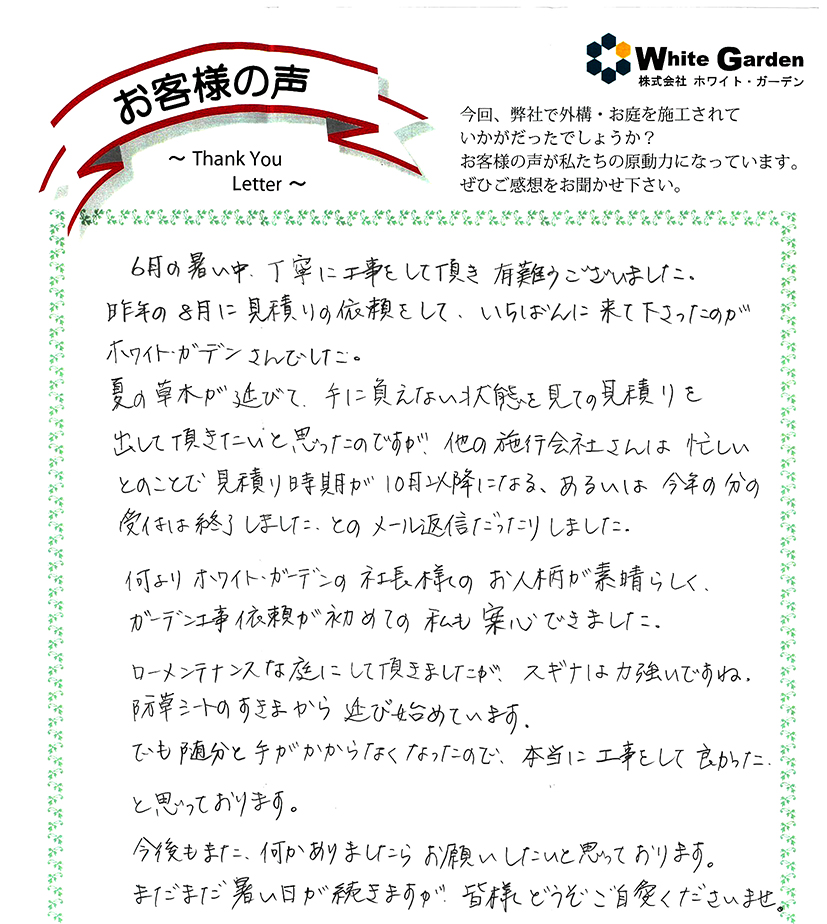 お客様の声
～ Thank You
Letter ～
White Garden
株式会社 ホワイト・ガーデン
今回、弊社で外構・お庭を施工されて
いかがだったでしょうか？
お客様の声が私たちの原動力になっています。
ぜひご感想をお聞かせ下さい。
6月の暑い中、丁寧に工事をして頂き 有難うございました。
昨年の8月に見積りの依頼をして、いちばんに来て下さったのが
ホワイト・ガデンさんでした。
夏の草木が延びて、手に負えない状態を見ての見積りを
出して頂きたいと思ったのですが、他の施行会社さんは 忙しい
とのことで見積り時期が10月以降になる、あるいは今年の分の
受付は終了しました、とのメール返信だったりしました。
何より ホワイト・ガーデンの社長様の お人柄が素晴らしく、
ガーデン工事依頼が初めての 私も 案心できました。
ローメンテナンスな庭にして頂きましたが、スギナは力強いですね。
防草シートのすきまから 延び始めています。
でも随分と手がかからなくなったので、本当に工事をして良かった、
と思っております。
今後もまた、何かありましたら お願いしたいと思っております。
まだまだ暑い日が続きますが、皆様どうぞご自愛くださいませ。